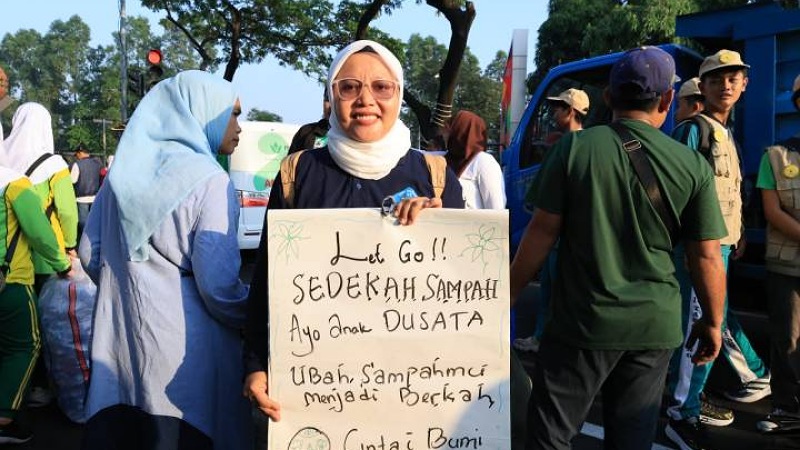 Let Go!!
SEDEKAH SAMPAH
Ayo anak DUSATA
UBah Sampahmu
menjadi Berkah
Cintai Bumi